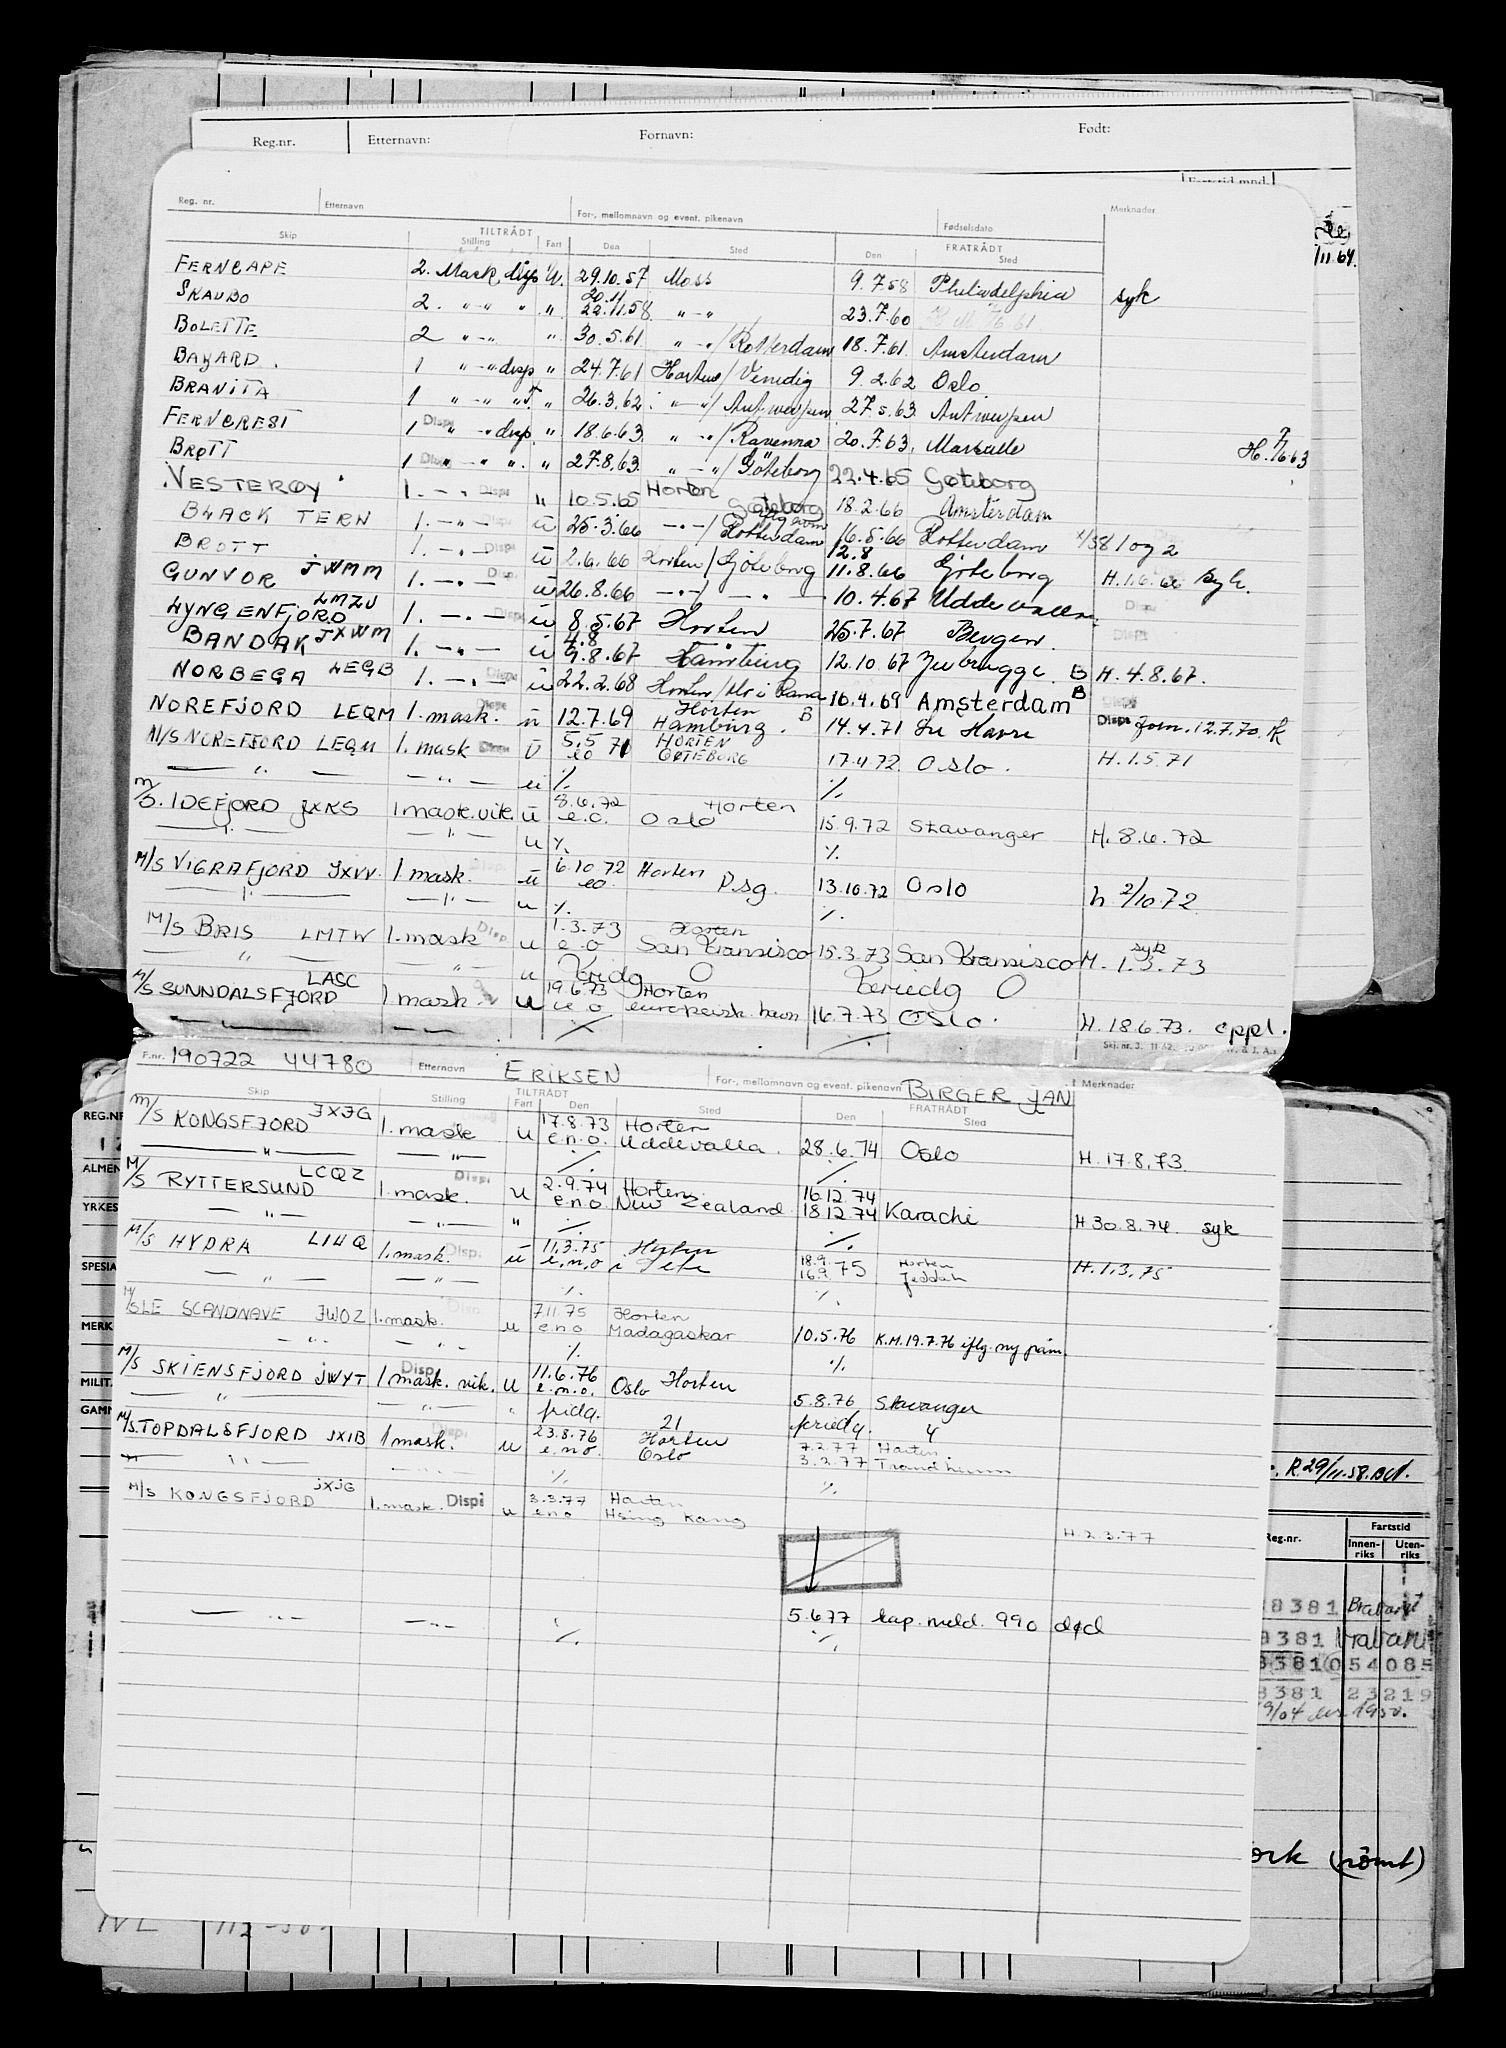 Reg.nr. Etternavn: Fornavn: Født:
Fartstid mnd.
/11.64.
Reg. nr. Etternavn For-, mellomnavn og event. pikenavn Fødselsdato Merknader
TILTRÅDT FRATRÅDT
Skip Stilling Fart Den Sted Den Sted
FERNCAPE 2. Mask. disp U. 29.10.57 Moss 9.7.58 Philadelphia syk
20.11
SKAUBO 2. " - " " " 22.11.58 " - " 23.7.60
BOLETTE 2 " - " " 30.5.61 " - " / Rotterdam 18.7.61 Amsterdam
BAYARD. 1 " - " disp " 24.7.61 Horten / Venedig 9.2.62 Oslo
BRANITA 1 " - " " " 26.3.62 " - " / Antwerpen 27.5.63 Antwerpen
FERNCREST 1 Disp " - " disp. " 18.6.63 " - " / Ravenna 20.7.63. Marseille H. 7/6.63
BRØTT 1 Disp " - " " " 27.8.63 " - " / Göteborg 22.4.65 Gøteborg
VESTERØY 1. - " - Disp " 10.5.65 Horten Gøteborg 18.2.66 Amsterdam
BLACK TERN 1. - " - Disp ü 25.3.66 - " - / Rotterdam 16.5.66 Rotterdam x/58 1 og 2
12.8
BROTT 1. - " - Disp ü 2.6.66 Horten / Göteborg 11.8.66 Göteborg H. 1.6.66 syk.
GUNVOR JWMM 1. - " - Disp ü 26.8.66 - " - / - " - 10.4.67 Uddevalla Disp
LYNGENFJORD LMZU 1. - " - Disp ü 8.5.67 Horten 25.7.67 Bergen. Disp
4.8
BANDAK JXWM 1. - " - ü 9.8.67 Hamburg 12.10.67 Zeebrugge. B H. 4.8.67.
NORBEGA LEGB 1. - " - Disp ü 22.2.68 Horten / 16.4.69 Amsterdam B Disp
NOREFJORD LEQM 1. mask. Disp ü 12.7.69 Horten Hamburg. B 14.4.71 Le Havre Disp Forn. 12.7.70.
M/S NOREFJORD LEQM 1. mask Disp ü 5.5 71 HORTEN 17.4.72 Oslo. H. 1.5.71
eo GØTEBORG
— " — — " — ü ./. ./.
M/S. IDEFJORD JXKS 1 mask. vik. ü 8.6.72 Horten
e.o. Oslo 15.9.72 Stavanger H. 8.6.72
— " — — " — u ./. ./.
M/S VIGRAFJORD JXVV. 1 mask. ü 6.10.72 Horten
eo P.sg. 13.10.72 Oslo h 2/10.72
— " — — " — u ./. ./.
M/S BRIS LMTW 1. mask Disp u 1.3.73 Horten syk
e.o San Fransisco 15.3.73 San Fransisco M. 1.3.73
— " — — " — u Feridg 0 Feriedg 0
M/S SUNNDALSFJORD LASC 1 mask. u 19.6.73 Horten
e.o europeisk havn 16.7.73 OSLO. H. 18.6.73. oppl.
— " — — " — ./. ./.
F.nr. 190722 44780 Etternavn ERIKSEN For-, mellomnavn og event. pikenavn BIRGER JAN Merknader
TILTRÅDT FRATRÅDT
Skip Stilling Fart Den Sted Den Sted
M/S KONGSFJORD JXJG 1. mask u 17.8.73 Horten
e.n.o. Uddevalla. 28.6.74 Oslo H. 17.8.73.
— " — — " — ./. ./.
M/S RYTTERSUND LCQZ 1. mask. Disp u 2.9.74 Horten 16.12.74
e.n.o New Zealand 18.12.74 Karachi H 30.8.74. syk
— " — — " — " ./. ./.
M/S HYDRA LIHQ 1. mask. Disp. ü 11.3.75 Horten 18.9. 75 Horten H. 1.3.75
e.n.o i 16.9. Jeddah
— " — — " — ./. ./.
M/S LE SCANDNAVE JWOZ 1. mask. Disp u 7.11.75 Horten
eno Madagaskar 10.5.76 K.M. 19.7.76 iflg. ny påm.
— " — — " — ./. ./.
M/S SKIENSFJORD JWYT 1 mask. vik. Disp u 11.6.76 Horten
e.n.o. Oslo 5.8.76 Stavanger
— " — — " — " frida. 21 friedg. 4
M/S. TOPDALSFJORD JXIB 1 mask. Disp u 23.8.76 Horten 7.2.77 Horten
e.n.o. Oslo 3.2.77 Trondheim
— " — — " — ./. ./.
M/S KONGSFJORD JXJG 1. mask. Disp u 3.3.77 Horten
eno Hong Kong H. 2.3.77
— " — — " — ./. 5.6.77 kap. meld. 990 død
./. ./.
REG.NR
ALMEN
YRKES
SPESIA
MERK
MILIT.
GAMM
R.29/11.58.
Reg.nr. Fartstid
Innen-riks Uten-riks
8381 Brabant
8381 Brabant
8381 054085
8381 23219
ork (rømt)